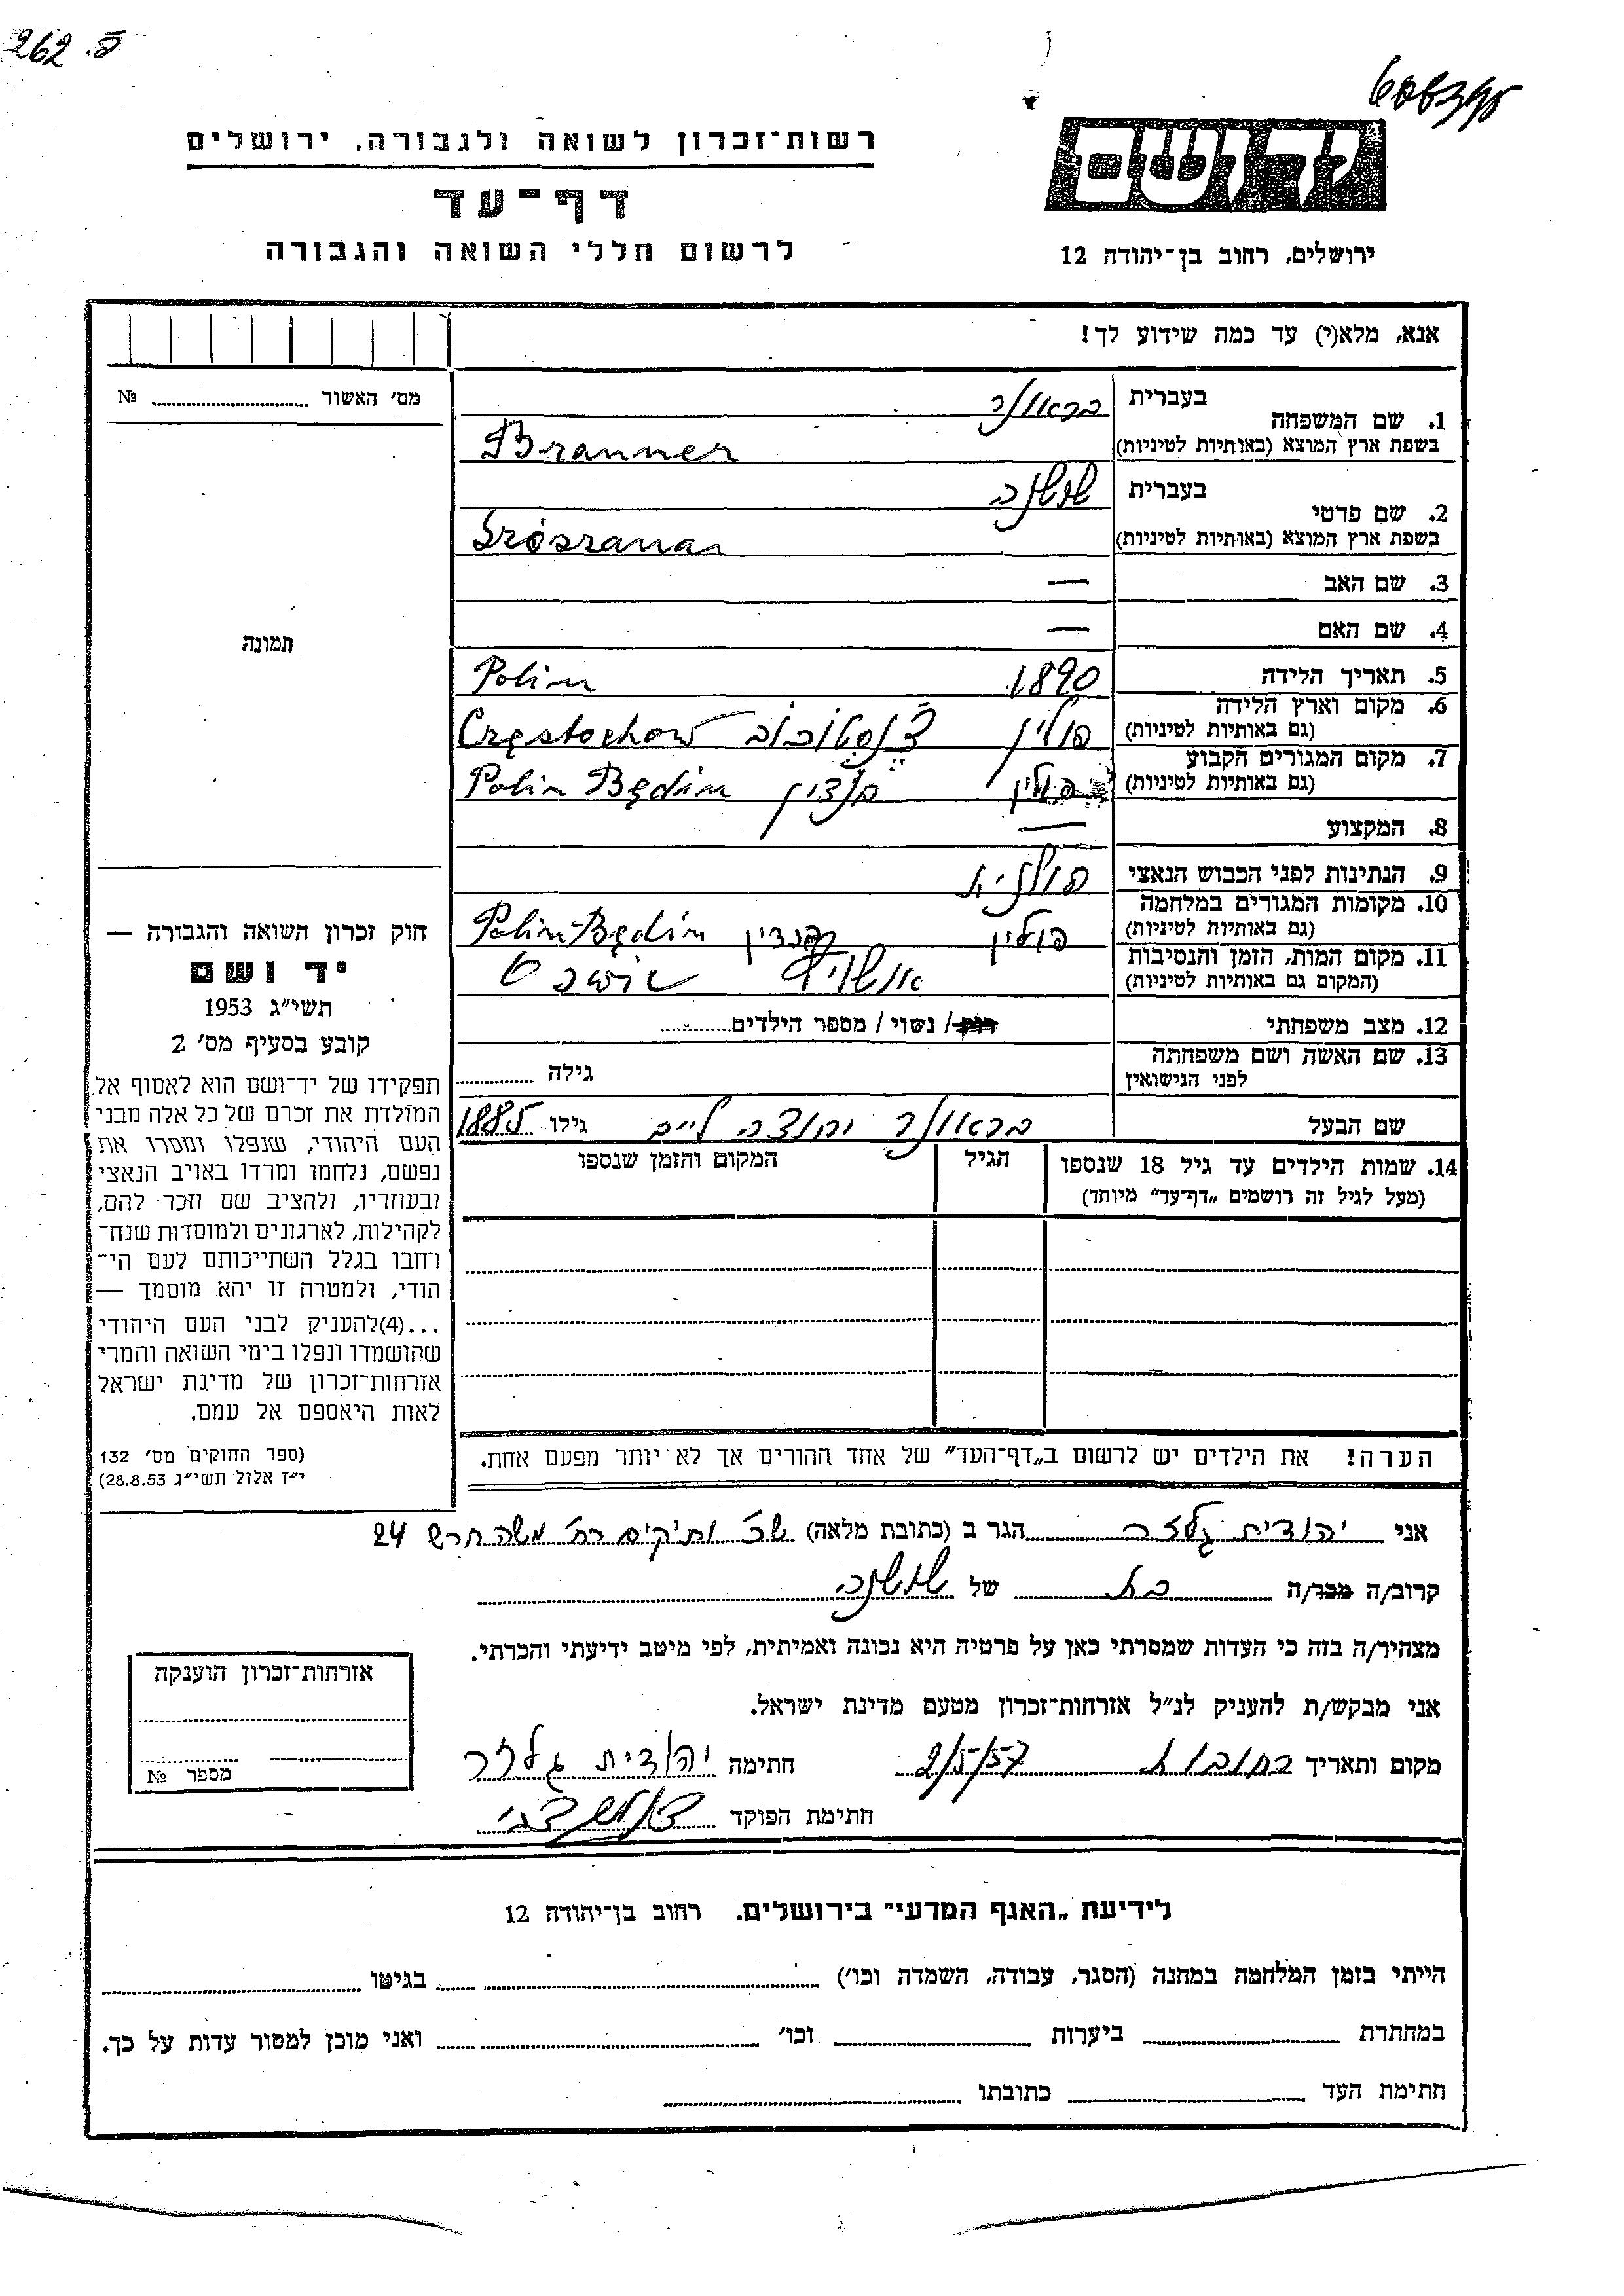 262.5
606390
רשות־זכרון לשואה ולגבורה, ירושלים
דף־עד
לרשום חללי השואה והגבורה
יד ושם
ירושלים, רחוב בן־יהודה 12
אנא, מלא(י) עד כמה שידוע לך!
1. שם המשפחה
בעברית בראונר
בשפת ארץ המוצא (באותיות לטיניות) Branner
2. שם פרטי
בעברית שושנה
בשפת ארץ המוצא (באותיות לטיניות)
3. שם האב —
4. שם האם —
5. תאריך הלידה 1890 Polin
6. מקום וארץ הלידה
(גם באותיות לטיניות) פולין צ'נסטוכוב Częstochow
7. מקום המגורים הקבוע
(גם באותיות לטיניות) פולין בנדין Polin Będin
8. המקצוע —
9. הנתינות לפני הכבוש הנאצי פולנית
10. מקומות המגורים במלחמה
(גם באותיות לטיניות) פולין בנדין Polin-Będin
11. מקום המות, הזמן והנסיבות
(המקום גם באותיות לטיניות) אושויץ
12. מצב משפחתי רווק / נשוי / מספר הילדים
13. שם האשה ושם משפחתה
לפני הנישואין גילה
שם הבעל בראונר יהודה לייב גילו 1885
14. שמות הילדים עד גיל 18 שנספו
(מעל לגיל זה רושמים „דף־עד״ מיוחד)
הגיל
המקום והזמן שנספו
הערה! את הילדים יש לרשום ב„דף־העד״ של אחד ההורים אך לא יותר מפעם אחת.
מס׳ האשור №
תמונה
חוק זכרון השואה והגבורה —
יד ושם
תשי״ג 1953
קובע בסעיף מס׳ 2
תפקידו של יד־ושם הוא לאסוף אל
המולדת את זכרם של כל אלה מבני
העם היהודי, שנפלו ומסרו את
נפשם, נלחמו ומרדו באויב הנאצי
ובעוזריו, ולהציב שם וזכר להם,
לקהילות, לארגונים ולמוסדות שנח־
רחבו בגלל השתייכותם לעם הי־
הודי, ולמטרה זו יהא מוסמך —
...(4)להעניק לבני העם היהודי
שהושמדו ונפלו בימי השואה והמרי
אזרחות־זכרון של מדינת ישראל
לאות היאספם אל עמם.
(ספר החוקים מס׳ 132
י״ז אלול תשי״ג 28.8.53)
אני יהודית גלזר הגר ב (כתובת מלאה) שכ׳ ותיקים רח׳ משה חרש 24
קרוב/ה מכר/ה בת של שושנה
מצהיר/ה בזה כי העדות שמסרתי כאן על פרטיה היא נכונה ואמיתית, לפי מיטב ידיעתי והכרתי.
אני מבקש/ת להעניק לנ״ל אזרחות־זכרון מטעם מדינת ישראל.
מקום ותאריך רחובות 2/5/57 חתימה יהודית גלזר
חתימת הפוקד
אזרחות־זכרון הוענקה
מספר №
לידיעת „האגף המדעי״ בירושלים. רחוב בן־יהודה 12
הייתי בזמן המלחמה במחנה (הסגר, עבודה, השמדה וכו׳) בגיטו
במחתרת ביערות וכו׳ ואני מוכן למסור עדות על כך.
חתימת העד כתובתו